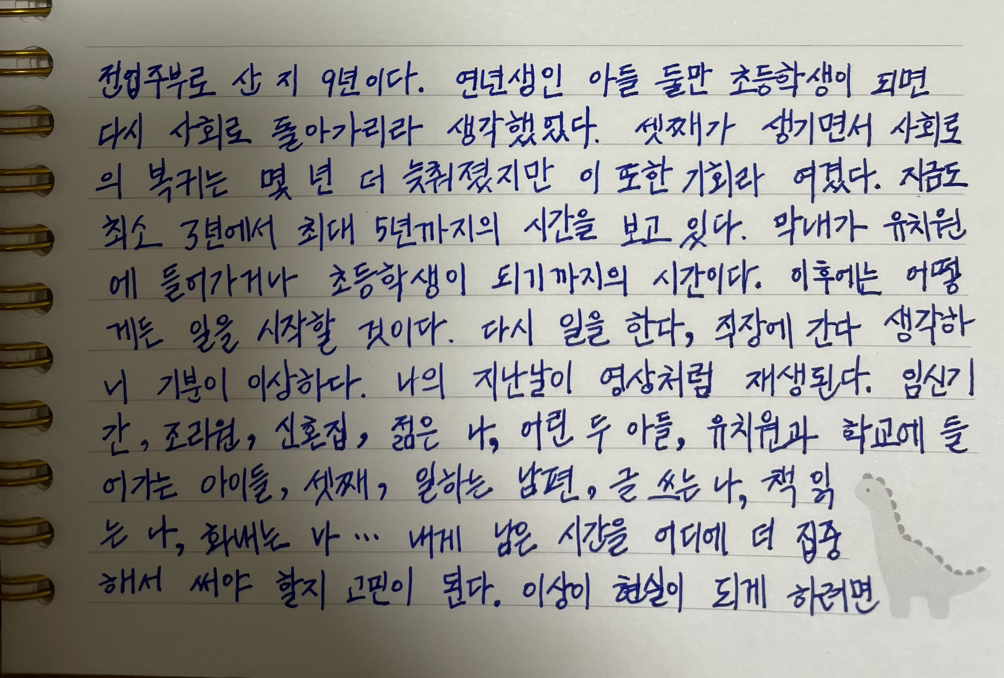 전업주부로 산 지 9년이다. 연년생인 아들 둘만 초등학생이 되면
다시 사회로 돌아가리라 생각했었다. 셋째가 생기면서 사회로
의 복귀는 몇 년 더 늦춰졌지만 이 또한 기회라 여겼다. 지금도
최소 3년에서 최대 5년까지의 시간을 보고 있다. 막내가 유치원
에 들어가거나 초등학생이 되기까지의 시간이다. 이후에는 어떻
게든 일을 시작할 것이다. 다시 일을 한다, 직장에 간다 생각하
니 기분이 이상하다. 나의 지난날이 영상처럼 재생된다. 임신기
간, 조리원, 신혼집, 젊은 나, 어린 두 아들, 유치원과 학교에 들
어가는 아이들, 셋째, 일하는 남편, 글 쓰는 나, 책 읽
는 나, 화내는 나 ... 내게 남은 시간을 어디에 더 집중
해서 써야 할지 고민이 된다. 이상이 현실이 되게 하려면